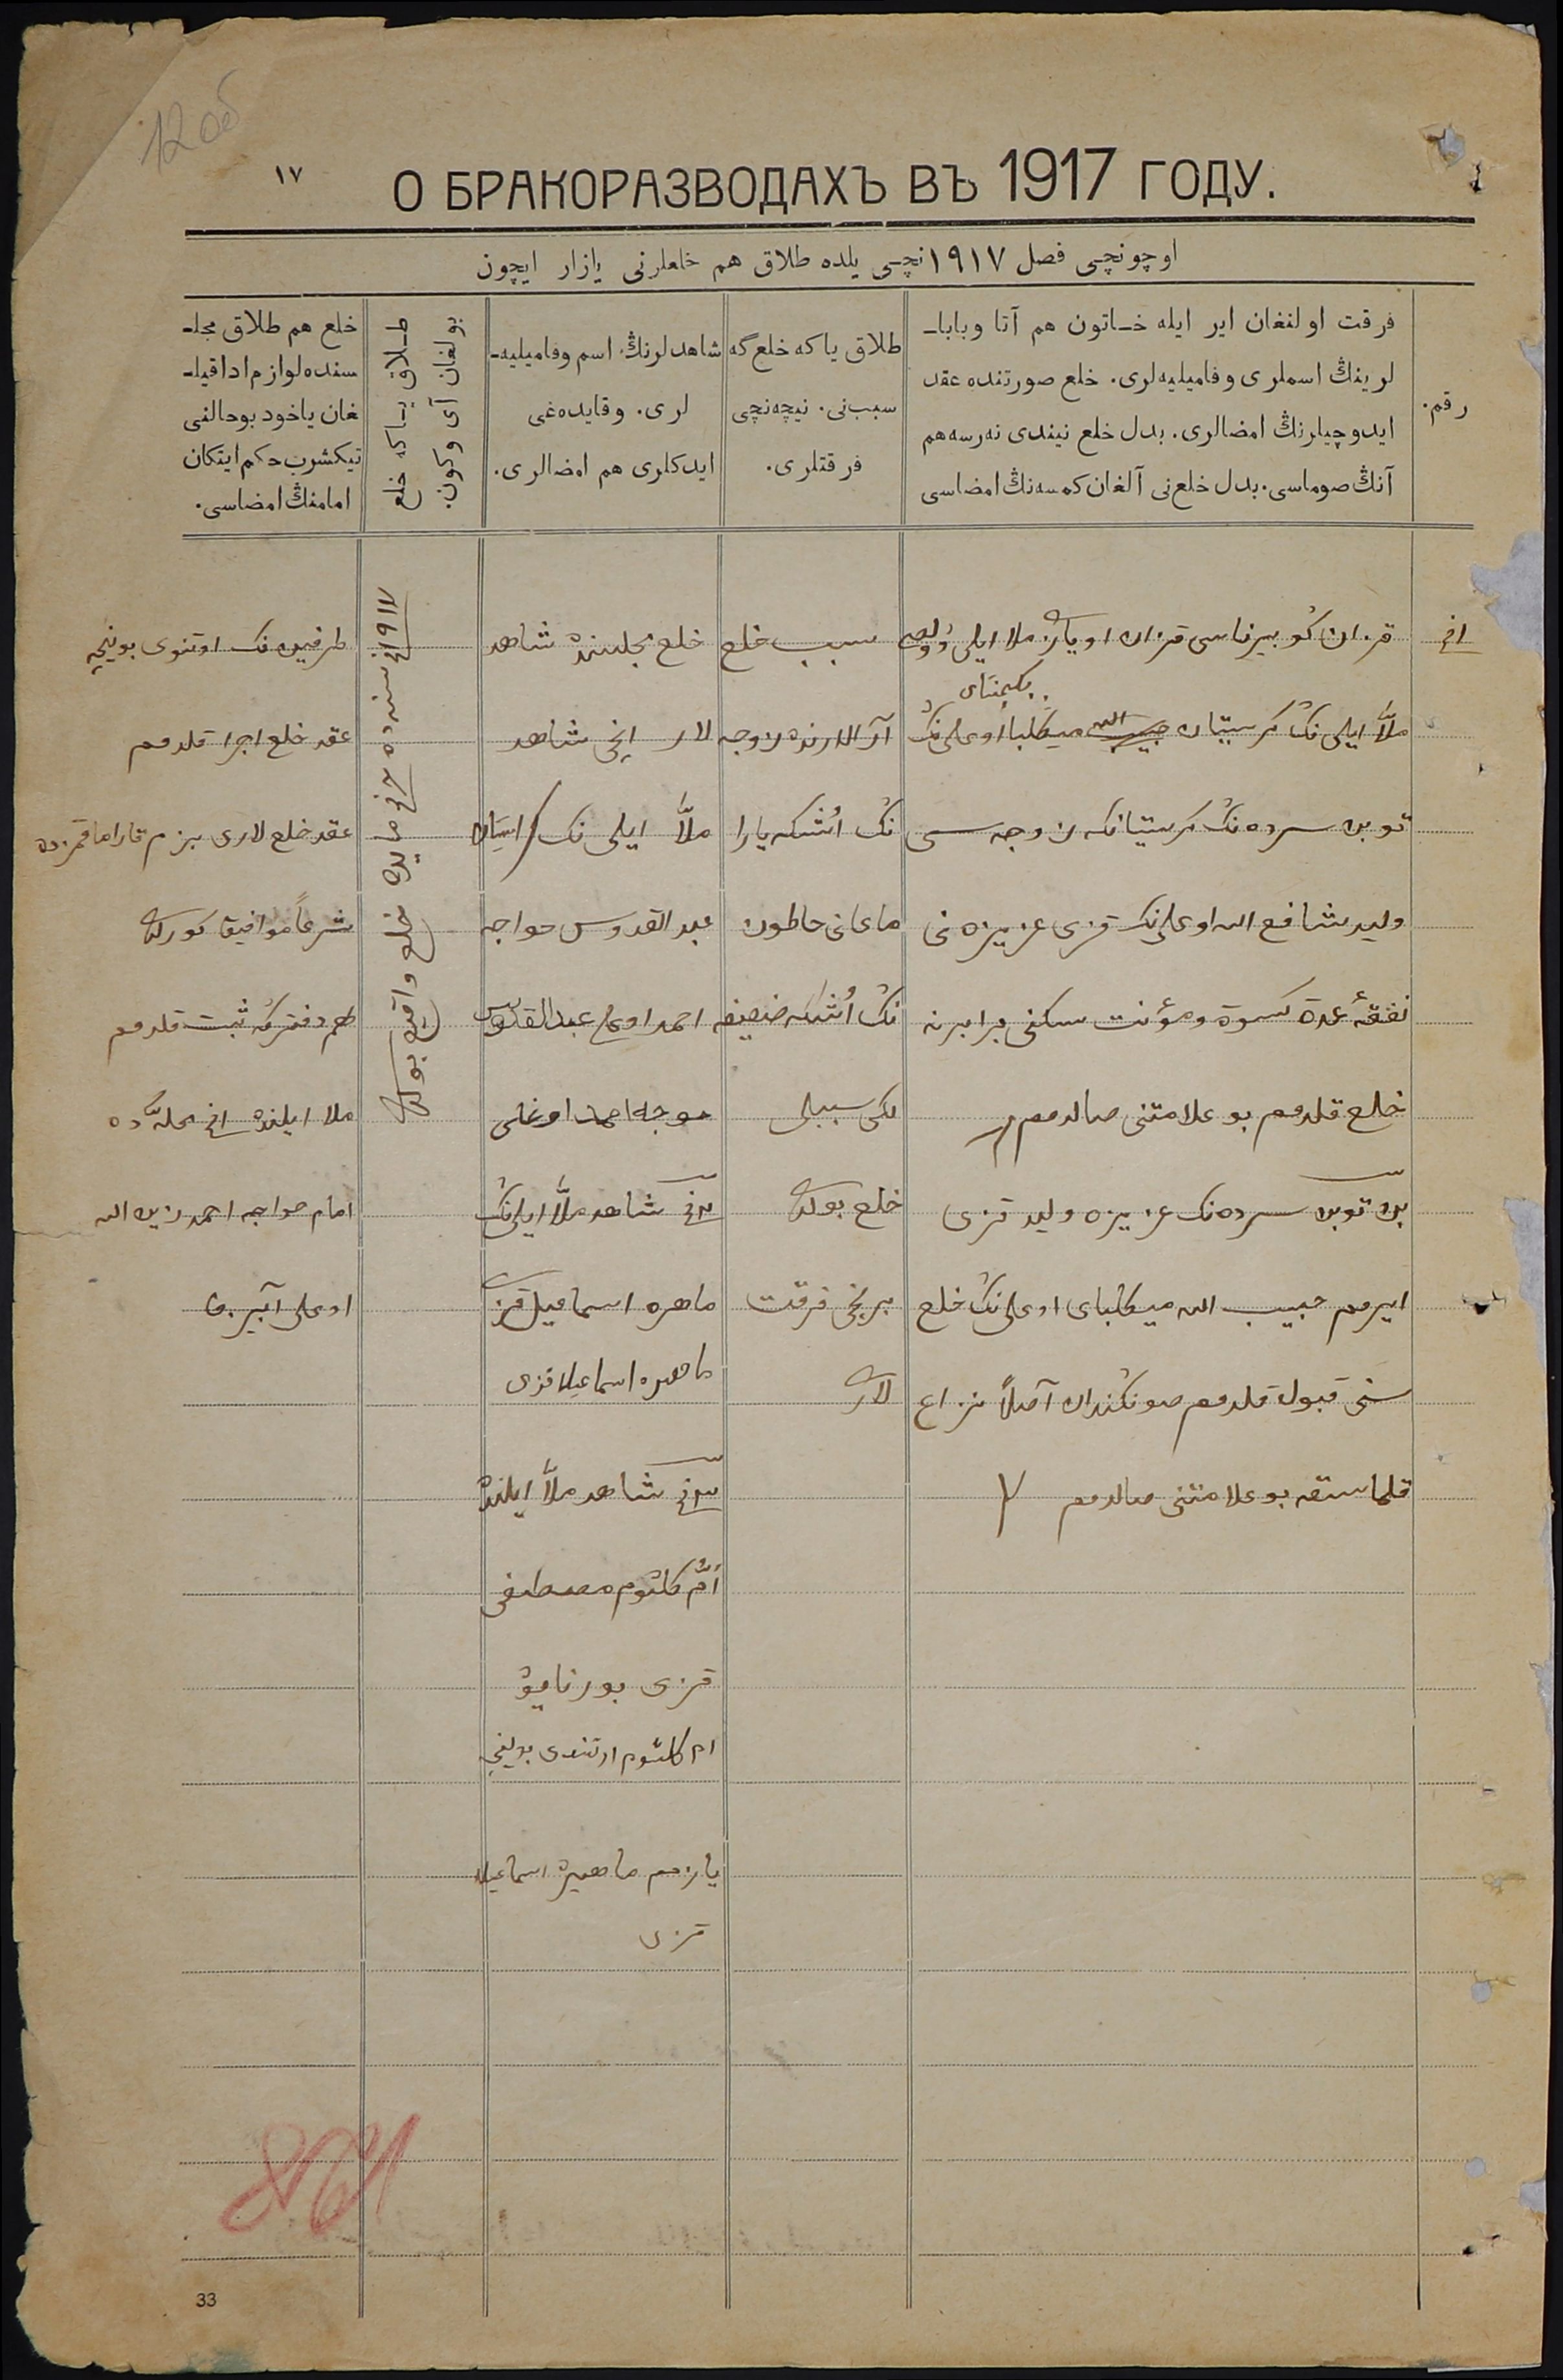 12 об
١٧
О БРАКОРАЗВОДАХЪ ВЪ 1917 ГОДУ.
اوچونچی فصل ١٩١٧نچی یلده طلاق هم خلعلرنی یازار ایچون
رقم.
فرقت اولنغان ایر ایله خاتون هم آتا وبابا-
لرینڭ اسملری وفامیلیه‌لری. خلع صورتنده عقد
ایدوچیلرنڭ امضالری. بدل خلع نیندی نه‌رسه هم
آنڭ صوماسی. بدل خلع‌نی آلغان کمسه‌نڭ امضاسی
طلاق یاکه خلع گه
سبب‌نی. نیچه‌نچی
فرقتلری.
شاهدلرنڭ اسم وفامیلیه-
لری. وقایده‌غی
ایدکلری هم امضالری.
طلاق یاکه خلع
بولغان آی وکون.
خلع هم طلاق مجل-
سنده لوازم ادا قیل-
غان یاخود بو حالنی
تیکشرب حکم ایتکان
امامنڭ امضاسی.
قزان گوبیرناسی قزان اویازی ملا ایلی
بکمتای
ملّا ایلی نڭ کرستیان میکلبا اوغلی نڭ
توبن سرده نڭ کرستیانکه زوجه سی
ولید شافع الله اوغلی نڭ قزی عزیزه نی
نفقهٔ عدة کسوة ومؤنت سکنی برابرنه
خلع قلدم بو علامتنی صالدم
بن توبن سرده نڭ عزیزه ولید قزی
ایرم حبیب الله میکلبای اوغلی نڭ خلع
سنی قبول قلدم صونکندان آصلاً نزاع
قلماسقه بو علامتنی صالدم
سبب خلع
آرالارنده زوجه
نڭ اُشکه یارا
خاطون
نڭ اُشکه ضعیفه
لکی سببلی
خلع بولدی
برنچی فرقت
لاری
خلع مجلسنده شاهد
لار ١نچی شاهد
ملّا ایلی نڭ
عبد القدوس خواجه
احمد اوغلی عبدالقدوس
خوجه احمد اوغلی
٢نچی شاهد ملّا ایلی نڭ
ماهره اسماعیل قزی
ماهره اسماعیل قزی
٣نچی شاهد ملّا ایلنده
اُمّ کلثوم مصطفی
قزی
ام کلثوم اوتنوی بوینچه
یازدم ماهیره اسماعیل
قزی
١٩١٧نچی سنه ده
خلع واقع بولدی
طرفین نڭ اوتنوی بوینچه
عقد خلع اجرا قلدم
عقد خلع لاری بزم
شرعاً موافق کورلدی
هم دفترگه ثبت قلدم
ملا ایلنده ١نچی محله ده
امام خواجه احمد زین الله
اوغلی
33